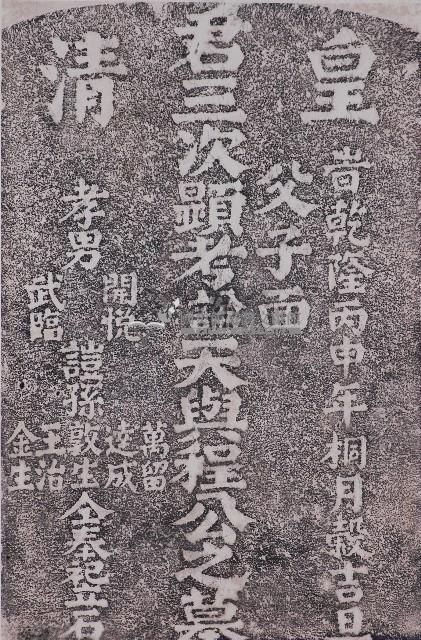 皇
旹乾隆丙申年桐月穀吉日
父子面
君三次顯考天與程公之墓
清
孝男
開悅
武臨
孫
萬留
達成
敦生
王治
金生
仝奉祀立石